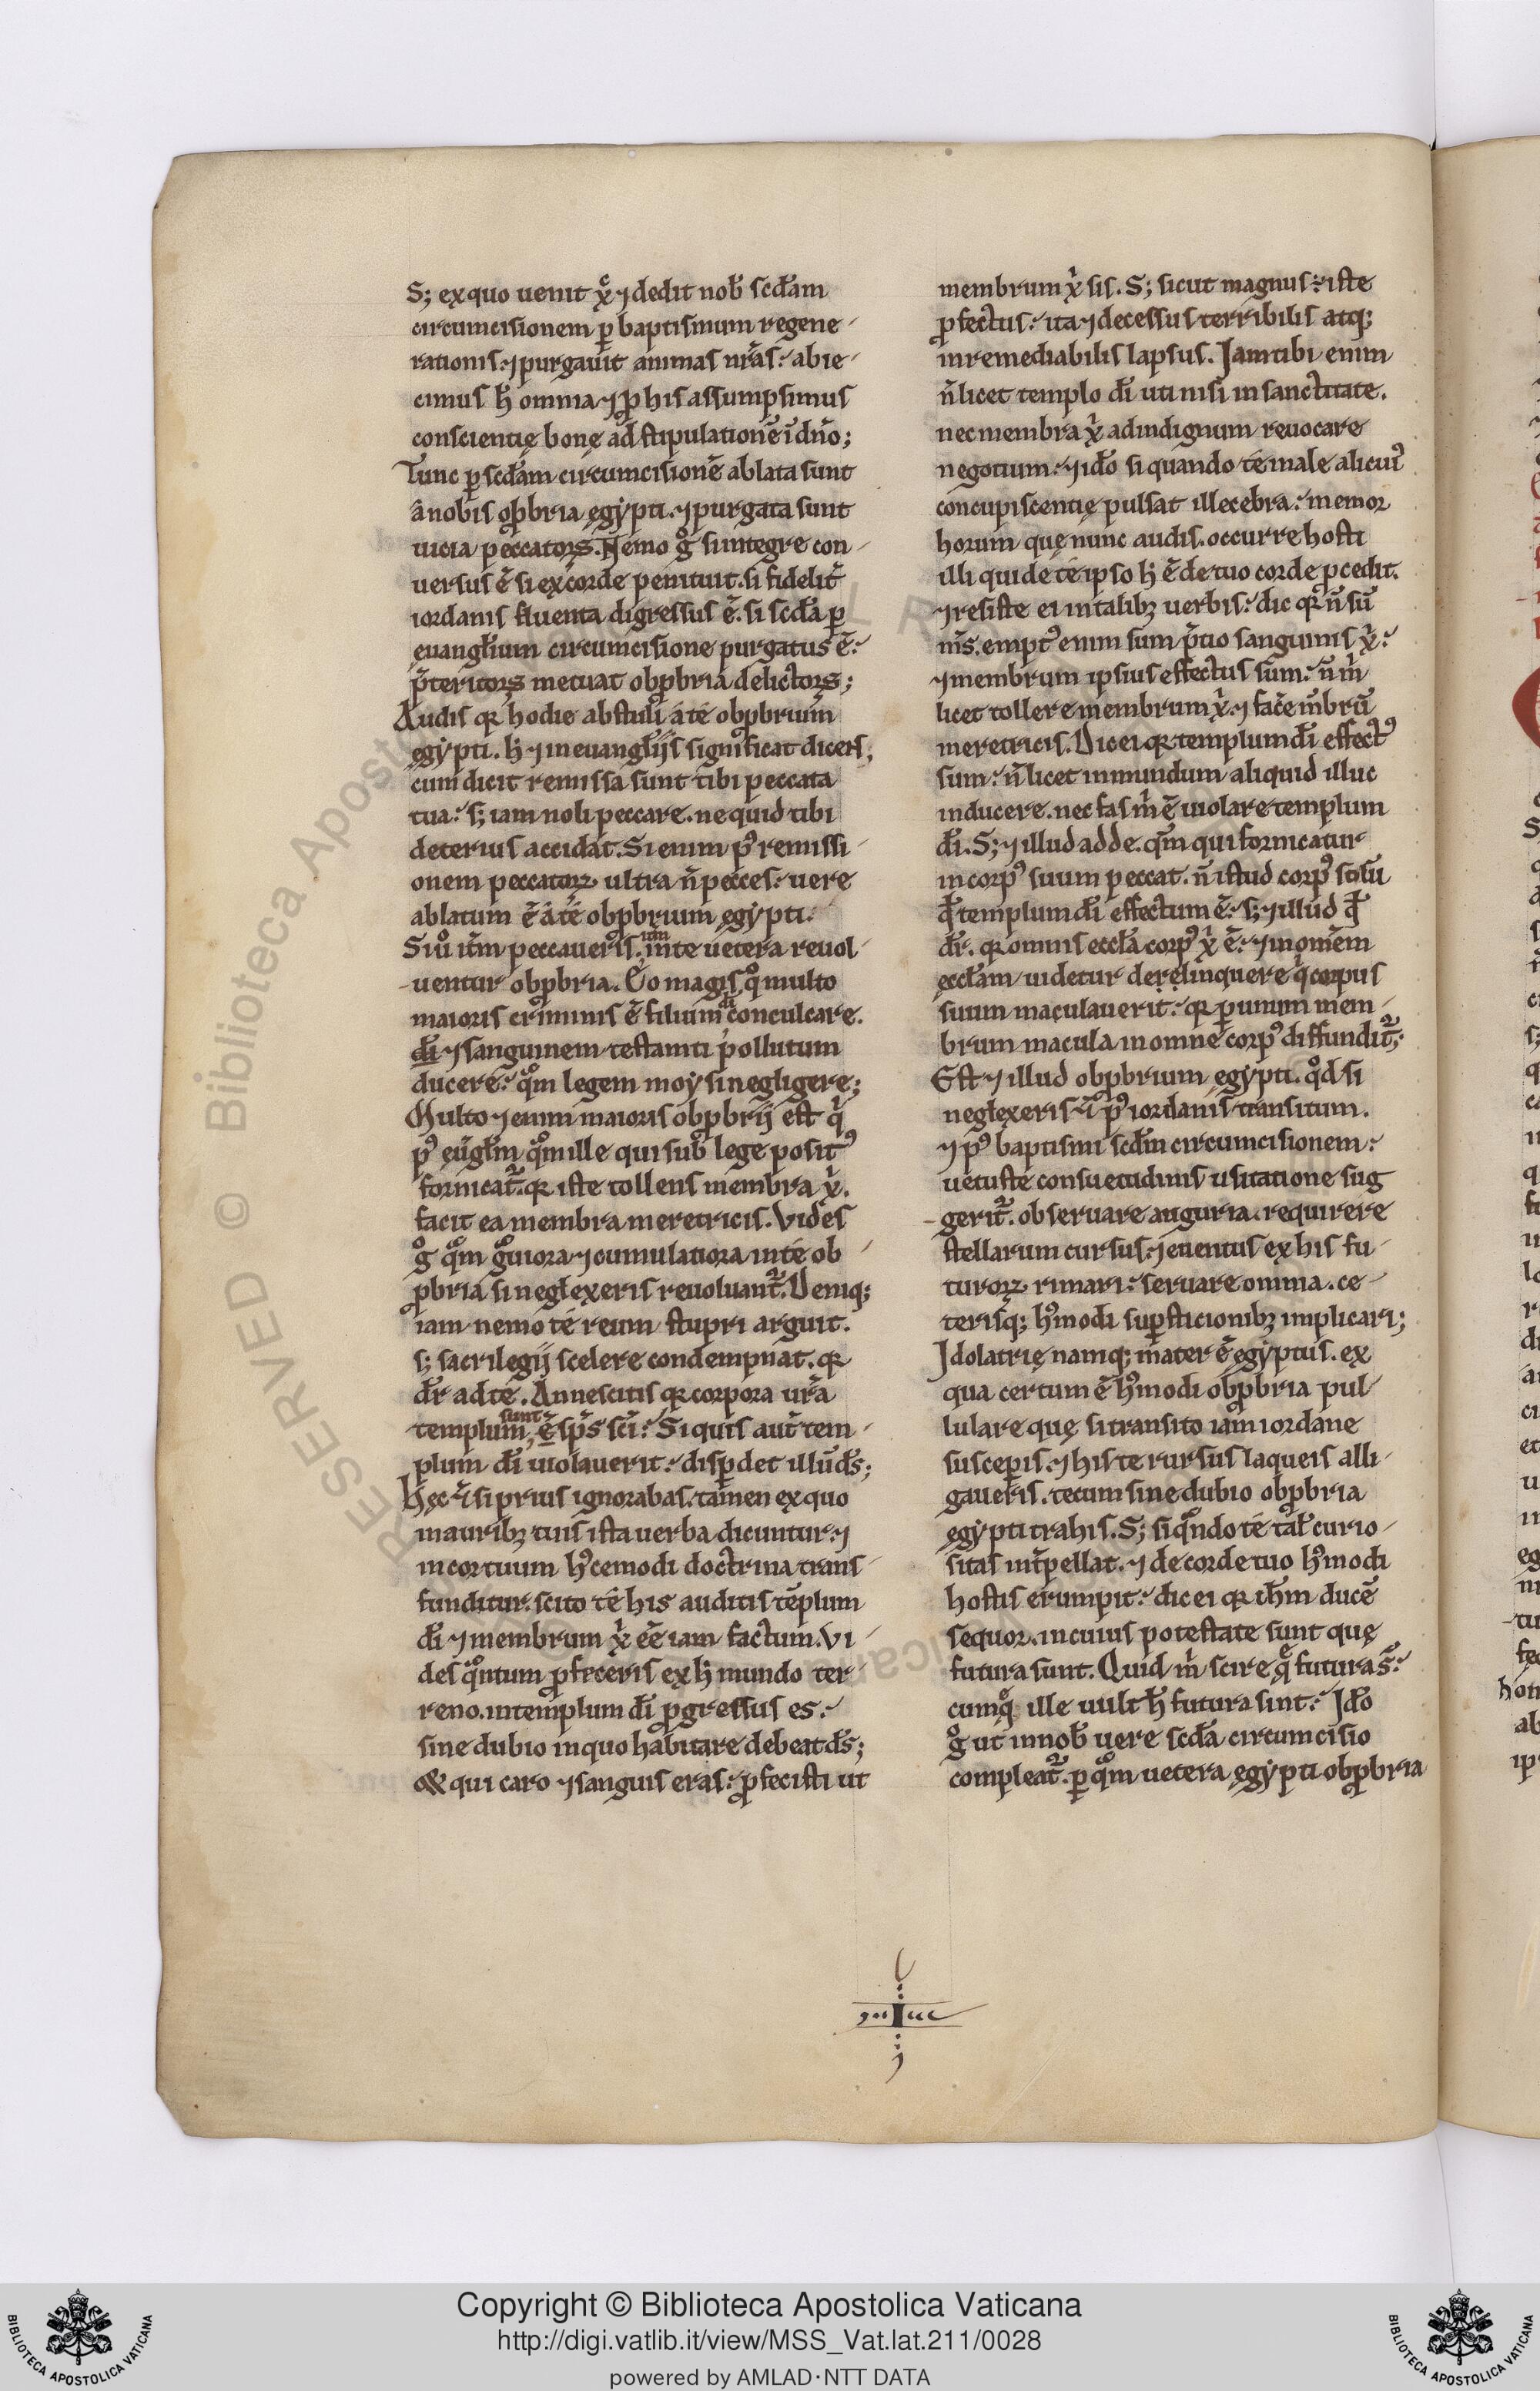 S; ex quo uenit xc̄ ⁊ dedit nob̄ scd̄am
circumcisionem ꝑ baptismum regene-
rationis. ⁊ purgauit animas nr̄as: abie-
cimus h̄ omnia ⁊ ꝓ his assumpsimus
conscientię bonę ad stipulationē ī dn̄o;
Tunc ꝑ scd̄am circumcisionē ablata sunt
a nobis obꝓbria ęgẏpti. ⁊ purgata sunt
uicia peccatorꝝ. Nemo gͦ si integre con-
uersus ē. si ex corde penituit. si fidelit̄
iordanis fluenta digressus ē. si scd̄a ꝑ
euangłium circumcisione purgatus ē:
p̄teritorꝝ metuat obꝓbria delictorꝝ;
Audis qꝛ hodie abstuli á té obꝓbrium
ęgẏpti. h̄ ⁊ in euangłijs significat dicens;
cum dicit remissa sunt tibi peccata
tua: s; iam noli peccare. ne quid tibi
deterius accidat. Si enim pꝰ remissi-
onem peccatorꝝ ultra n̄ pecces: uere
ablatum ē á té obꝓbrium ęgẏpti.
Si uͦ it̄m peccaueris. in te uetera reuol-
uentur obꝓbria. Eo magis qͦ multo
maioris criminis ē filium di conculcare.
di ⁊ sanguinem testam̄ti pollutum
ducere: qͣm legem moẏsi negligere;
Multo ⁊ enim maioris obꝓbrij est qͥ
pꝰ eūgłm qͣm ille qui sub lege positꝰ
fornicat᷑. qꝛ iste tollens membra xͥ.
facit ea membra meretricis. Vides
gͦ qͣm gͣuiora ⁊ cumulatiora in té ob-
ꝓbria si neglexeris reuoluant᷑. Deniq;
iam nemo té reum stupri arguit.
s; sacrilegij scelere condempnat. qꝛ
dr̄ ad té. An nescitis qꝛ corpora ur̄a
templum sunt ē sp̄s sc̄i: Si quis aut̄ tem-
plum di uiolauerit: disꝑdet illū ds̄;
Hęc ⁊ si prius ignorabas. tamen ex quo
in auribꝫ tuis ista uerba dicuntur: ⁊
in cor tuum hꝰcemodi doctrina trans-
funditur: scito té his auditis tēplum
di ⁊ membrum xͥ eē iam factum. Vi-
des qͣntum ꝓfeceris ex h̄ mundo ter-
reno. in templum di ꝓgressus es:
sine dubio in quo habitare debeat ds̄;
& qui caro ⁊ sanguis eras: ꝓfecisti ut
membrum xͥ sis. S; sicut magnus: iste
ꝓfectus: ita ⁊ decessus terribilis atq;
inremediabilis lapsus. Iam tibi enim
n̄ licet templo di uti nisi in sanctitate.
nec membra xͥ ad indignum reuocare
negotium: ⁊ ido si quando té male alicuiꝰ
concupiscentię pulsat illecebra: memor
horum quę nunc audis. occurre hosti
illi qui de té ipso h̄ ē de tuo corde ꝓcedit.
⁊ resiste ei in talibꝫ uerbis: dic qꝛ n̄ sū
m̄s. emptꝰ enim sum p̄tio sanguinis xͥ:
⁊ membrum ipsius effectus sum: n̄ mͥ
licet tollere membrum xͥ. ⁊ facē mb̄rū
meretricis. Dic ei qꝛ templum di effectꝰ
sum: n̄ licet inmundum aliquid illuc
inducere. nec fas mͥ ē uiolare templum
di. S; ⁊ illud adde. qm̄ qui fornicatur
in corpꝰ suum peccat. n̄ istud corpꝰ solū
qd̄ templum di effectum ē: s; ⁊ illud qd̄
dr̄. qꝛ omnis eccła corpꝰ xͥ ē: ⁊ in omēm
ęccłam uidetur derelinquere qͥ corpus
suum maculauerit: qꝛ ꝑ unum mem-
brum macula in omne corpꝰ diffundit᷑;
Est ⁊ illud obꝓbrium ęgẏpti. qͦd si
neglexeris ⁊ pꝰ iordanis transitum.
⁊ pꝰ baptismi scd̄m circumcisionem:
uetuste consuetudinis usitatione sug
gerit᷑. obseruare auguria. requirere
stellarum cursus: ⁊ euentus ex his fu-
turorꝝ rimari: seruare omina. ce-
terisq; hꝰmodi suꝑsticionibꝫ implicari;
Idolatrię namq; mater ē ęgẏptus. ex
qua certum ē hꝰmodi obꝓbria pul-
lulare quę si transito iam iordane
susceꝑis. ⁊ his te rursus laqueis alli-
gaueris. tecum sine dubio obꝓbria
ęgẏpti trahis. S; si qͣndo té tał curio-
sitas int̄pellat. ⁊ de corde tuo hꝰmodi
hostis erumpit: dic ei qꝛ ih̄m ducē
sequor. in cuius potestate sunt quę
futura sunt. Quid mͥ scire qͣ futura sͥ:
cumqͣ ille uult h̄ futura sint: Ido
gͦ ut in nob̄ uere scd̄a circumcisio
compleat᷑. ꝑ qͣm uetera ęgẏpti obꝓbria
I
RESERVED © Biblioteca Aposto
Copyright © Biblioteca Apostolica Vaticana
http://digi.vatlib.it/view/MSS_Vat.lat.211/0028
powered by AMLAD·NTT DATA
BIBLIOTECA APOSTOLICA VATICANA
BIBLIOTECA APOSTOLICA VATICANA